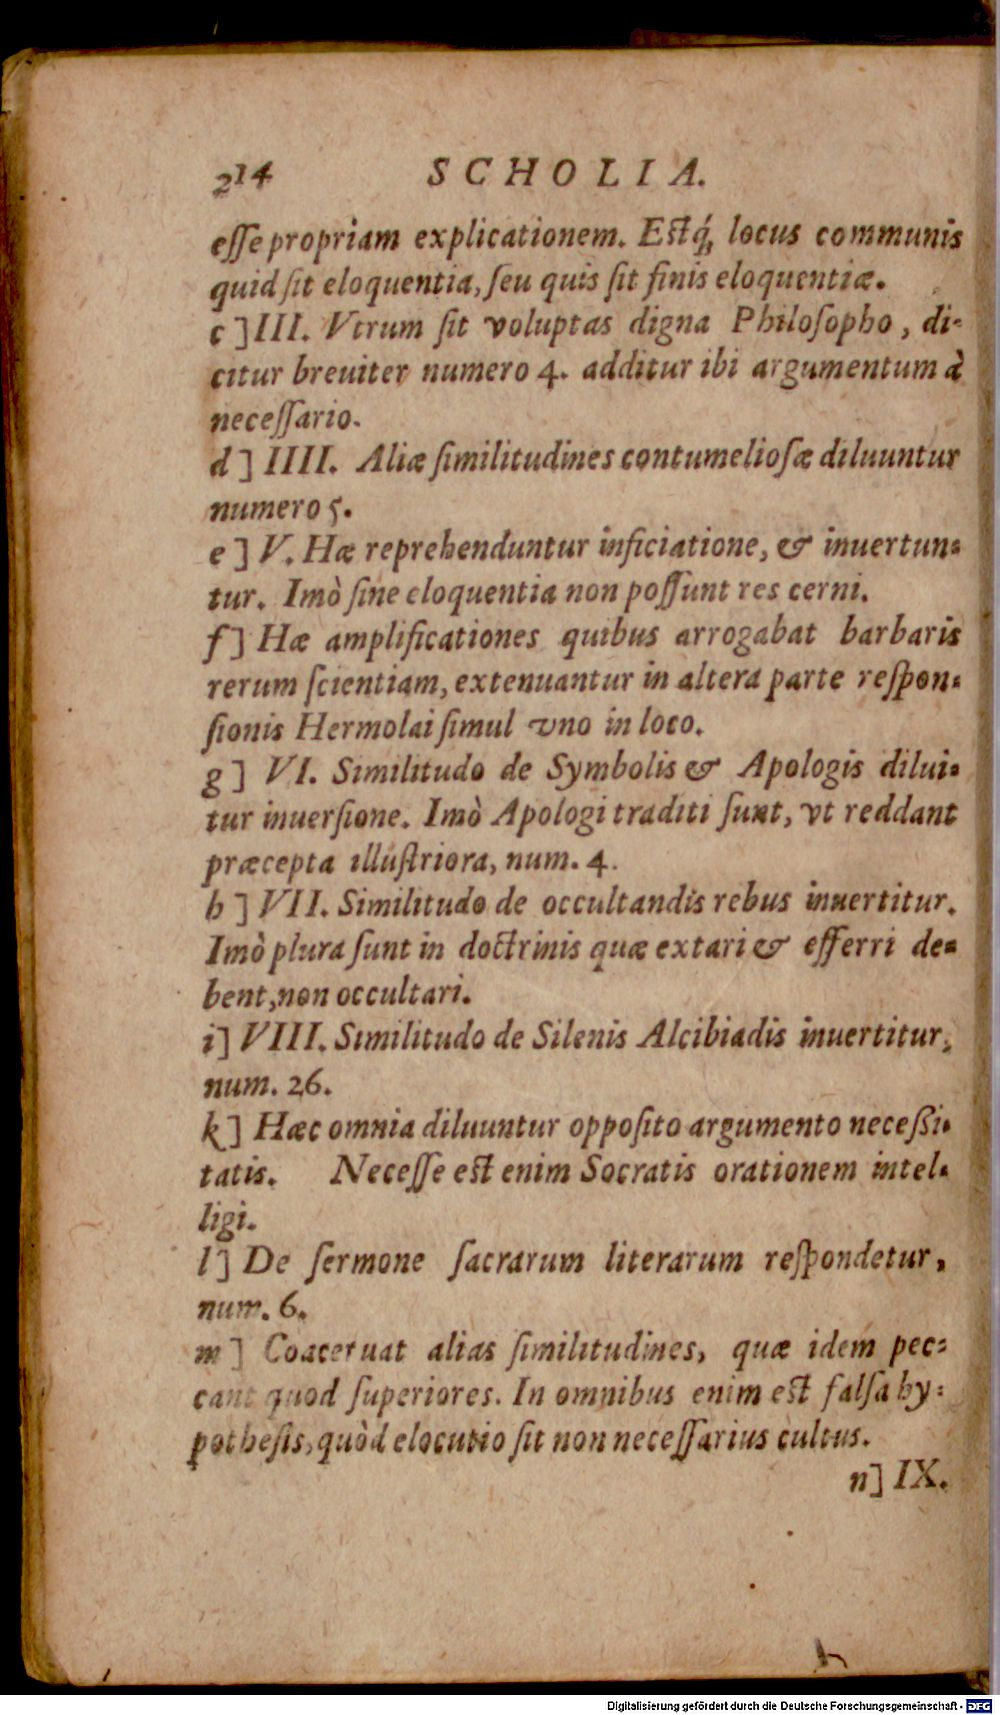 214 SCHOLIA.
eſſe propriam explicationem. Estq́; locus communis
quid ſit eloquentia, ſeu quis ſit finis eloquentiæ.
c ] III. Vtrum ſit voluptas digna Philoſopho, di-
citur breuiter numero 4. additur ibi argumentum à
neceſſario.
d ] IIII. Aliæ ſimilitudines contumelioſæ diluuntur
numero 5.
e ] V. Hæ reprehenduntur inficiatione, & inuertun-
tur. Imò ſine eloquentia non poſſunt res cerni.
f ] Hæ amplificationes quibus arrogabat barbaris
rerum ſcientiam, extenuantur in altera parte reſpon-
ſionis Hermolai ſimul vno in loco.
g ] VI. Similitudo de Symbolis & Apologis dilui-
tur inuerſione. Imò Apologi traditi ſunt, vt reddant
præcepta illuſtriora, num. 4.
h ] VII. Similitudo de occultandis rebus inuertitur.
Imò plura ſunt in doctrinis quæ extari & efferri de-
bent, non occultari.
i] VIII. Similitudo de Silenis Alcibiadis inuertitur,
num. 26.
k ] Hæc omnia diluuntur oppoſito argumento neceßi-
tatis. Neceſſe est enim Socratis orationem intel-
ligi.
l ] De ſermone ſacrarum literarum reſpondetur,
num. 6.
m ] Coaceruat alias ſimilitudines, quæ idem pec-
cant quod ſuperiores. In omnibus enim est falſa hy-
potheſis, quòd elocutio ſit non neceſſarius cultus.
n] IX.
Digitalisierung gefördert durch die Deutsche Forschungsgemeinschaft - DFG